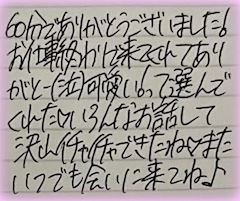 60分でありがとうございました!
お仕事終わりに来てくれてあり
がとー(泣)可愛いって選んで
くれた♡いろんなお話して
沢山イチャイチャできたね♡また
いつでも会いに来てね♪